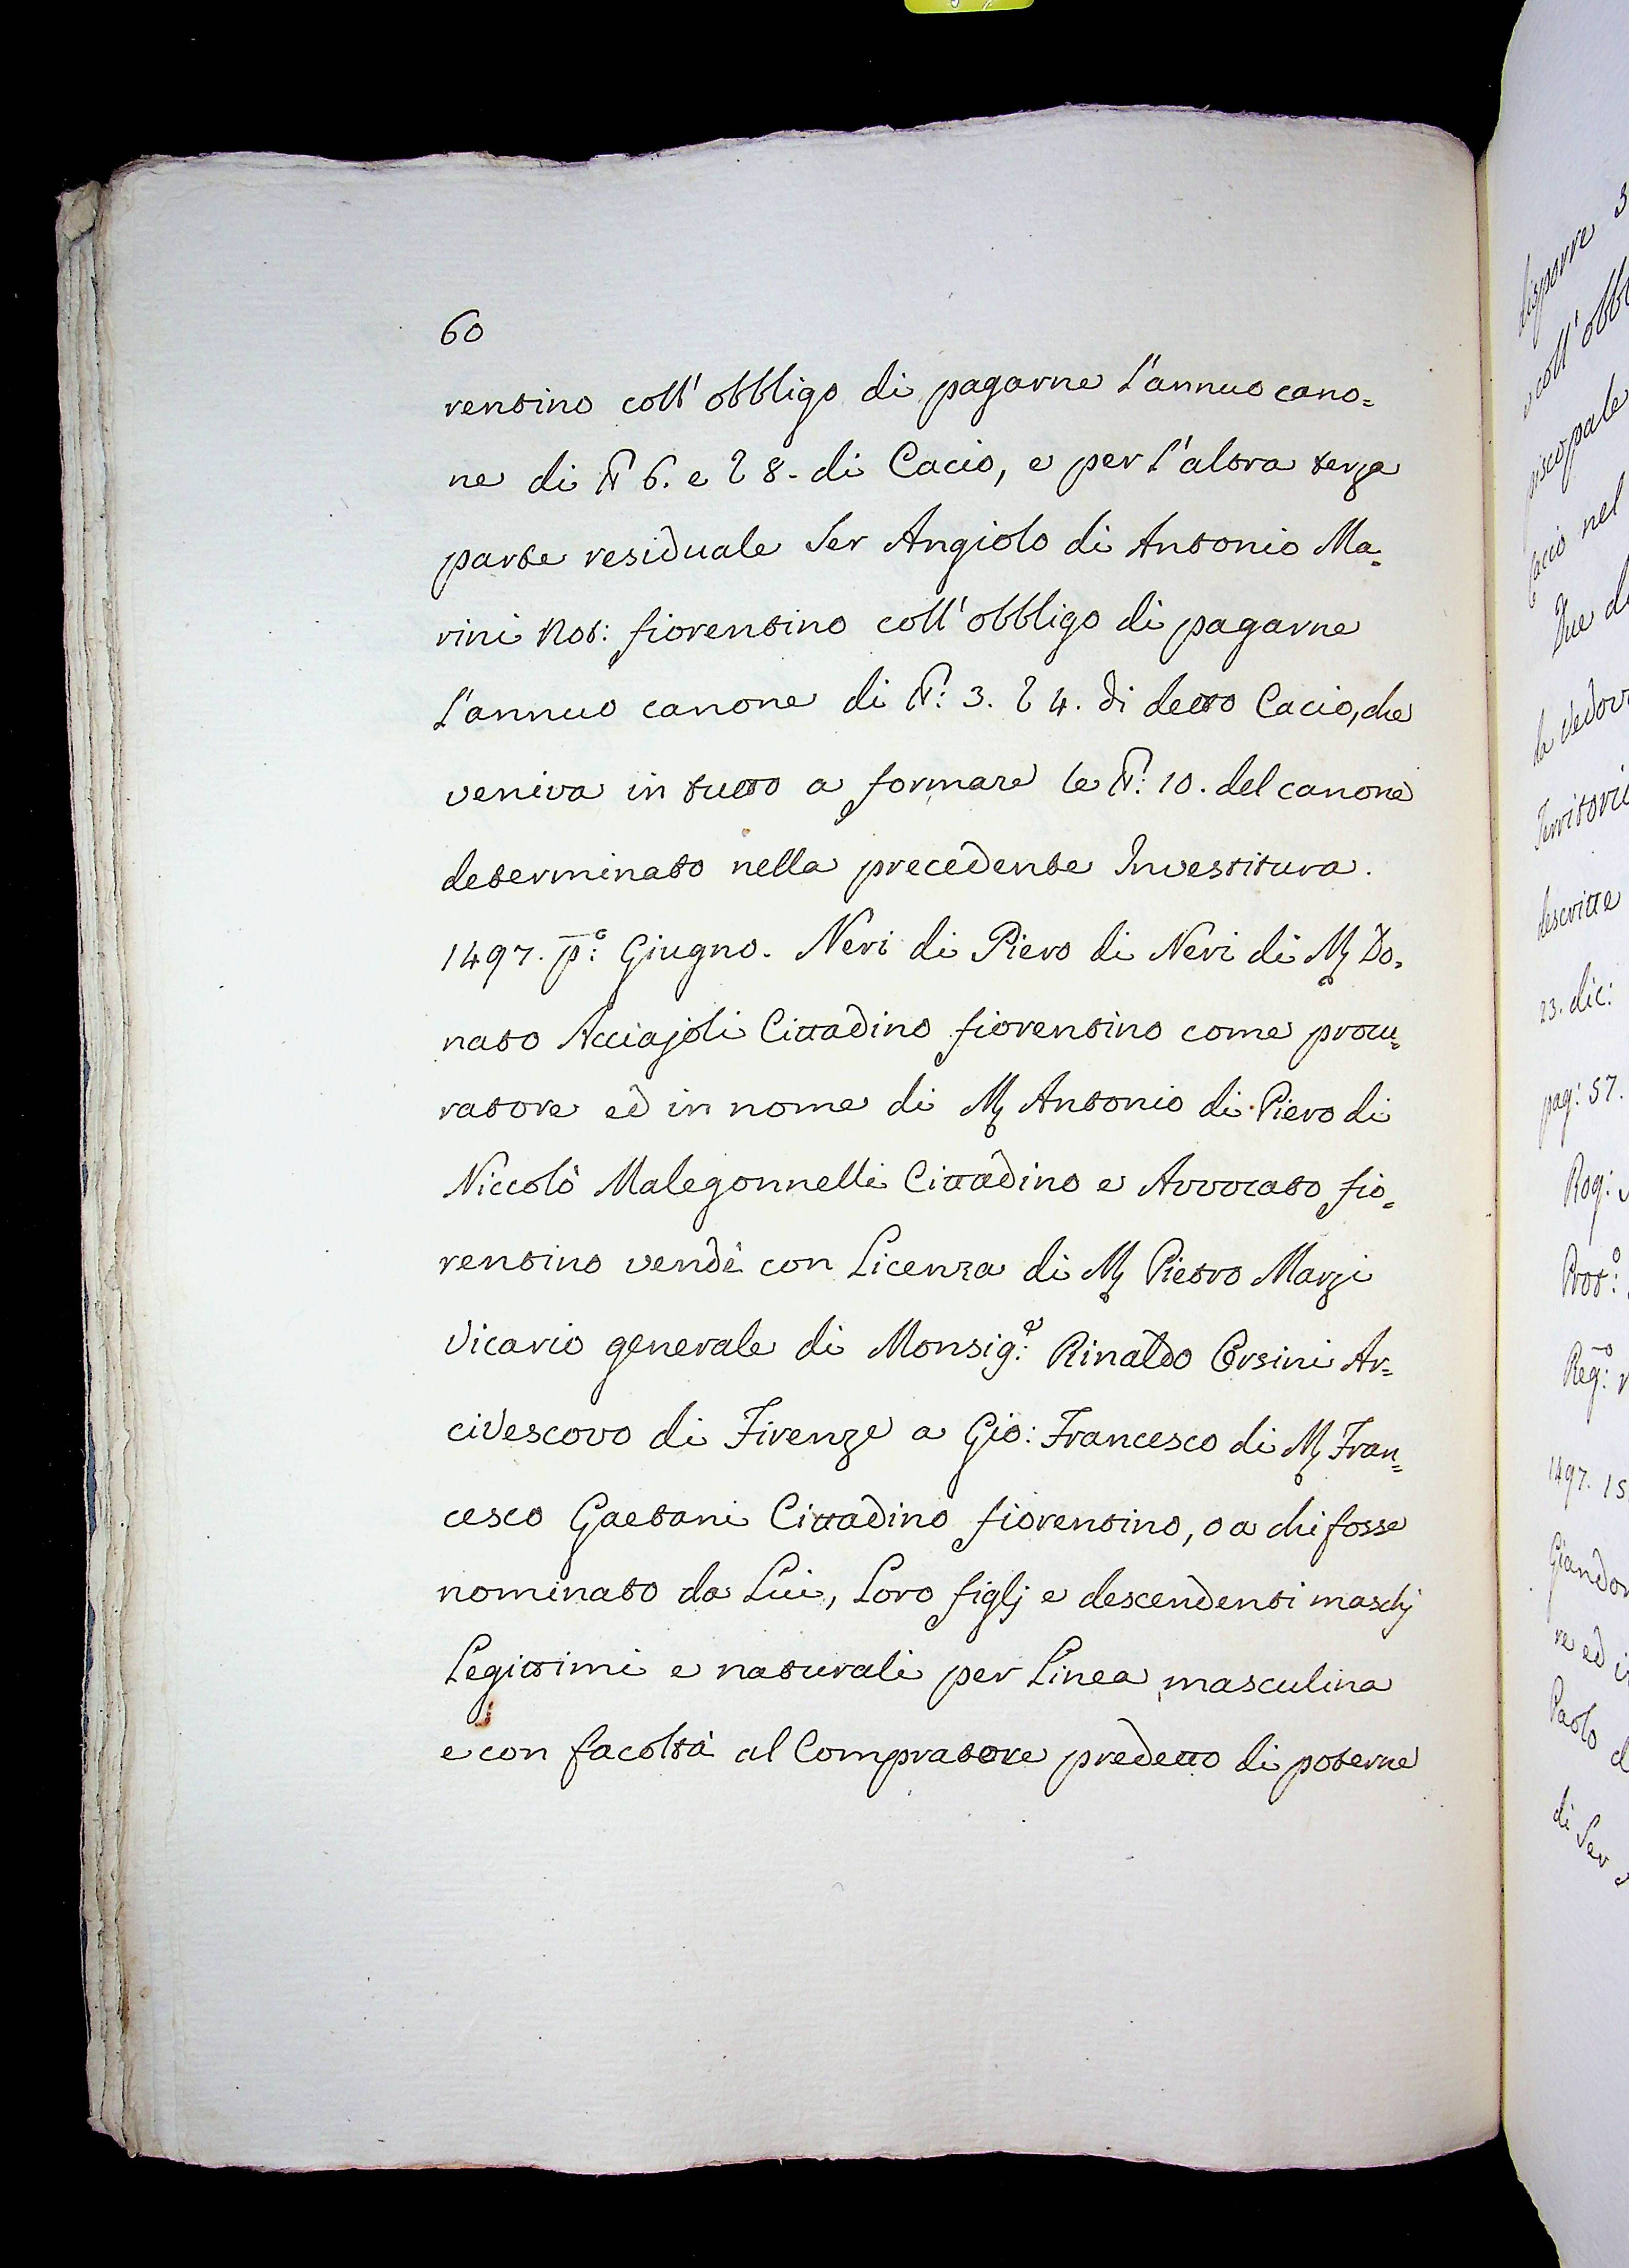 60
rentino coll' obbligo di pagarne l'annuo cano=
ne di ₶ 6. e ₰ 8. di Cacio, e per l'altra terza
parte residuale Ser Angiolo di Antonio Ma=
rini Not: fiorentino coll' obbligo di pagarne
l'annuo canone di ₶: 3. ₰ 4. di detto Cacio, che
veniva in tutto a formare le ₶: 10. del canone
determinato nella precedente Investitura.
1497. p:º Giugno. Neri di Piero di Neri di M Do=
nato Acciajoli Cittadino fiorentino come procu=
ratore ed in nome di M Antonio di Piero di
Niccolò Malegonnelli Cittadino e Avvocato fio=
rentino vendè con Licenza di M Pietro Marzi
Vicario generale di Monsig:e Rinaldo Orsini Ar=
civescovo di Firenze a Gio: Francesco di M Fran=
cesco Gaetani Cittadino fiorentino, o a chi fosse
nominato da Lui, Loro figlj e descendenti maschj
Legittimi e naturali per Linea masculina
e con facoltà al Compratore predetto di poterne
disporre
coll' obbl
piscopale
Cacio nel
Due d
la Vedov
Territori
descritte
23. dic:
pag: 57.
Rog:
Prot:º
Reg:º
1497. 15
Giandon
re ed i
Paolo d
di Ser